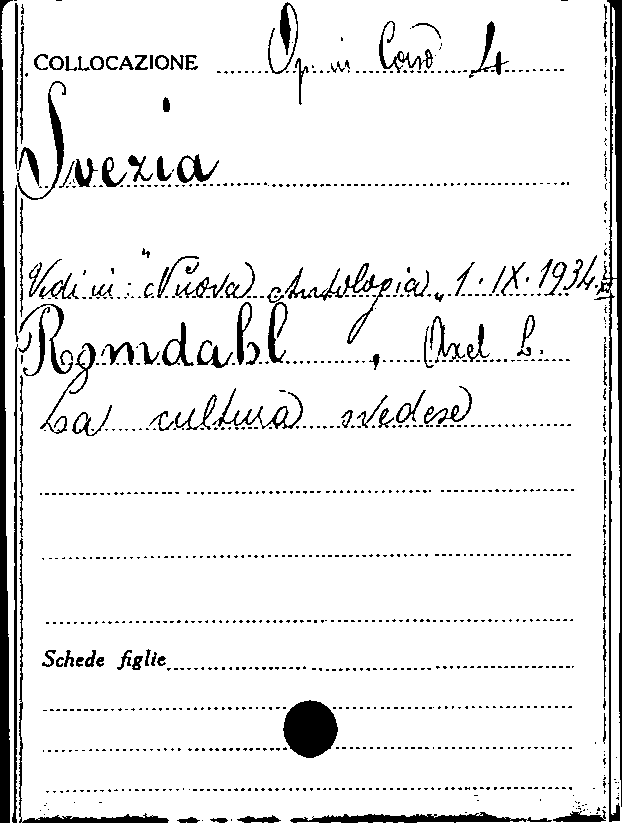 COLLOCAZIONE Op. in Corso 4
Svezia
Vedi in: "Nuova Antologia„ 1. IX. 1934. XII
Romdahl, Axel L.
La cultura svedese
Schede figlie